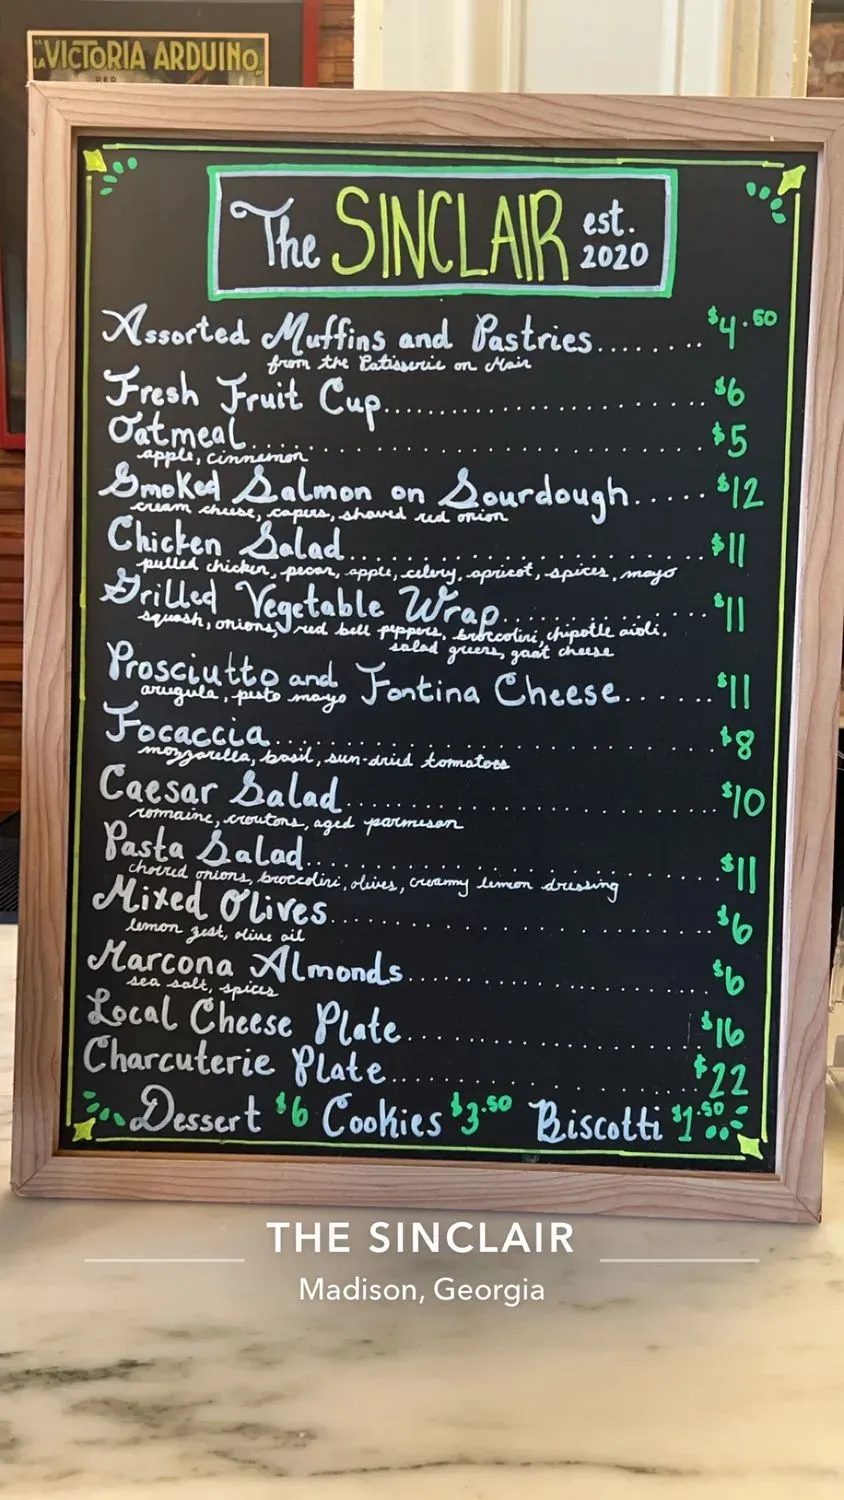 "LA VICTORIA ARDUINO"
PER
The SINCLAIR est. 2020
Assorted Muffins and Pastries....... $4.50
from the Patisserie on Main
Fresh Fruit Cup........................ $6
Oatmeal................................ $5
apple, cinnamon
Smoked Salmon on Sourdough..... $12
cream cheese, capers, shaved red onion
Chicken Salad........................... $11
pulled chicken, pecan, apple, celery, apricot, spices, mayo
Grilled Vegetable Wrap................ $11
squash, onions, red bell peppers, broccolini, chipotle aioli,
salad greens, goat cheese
Prosciutto and Fontina Cheese....... $11
arugula, pesto mayo
Focaccia................................ $8
mozzarella, basil, sun-dried tomatoes
Caesar Salad........................... $10
romaine, croutons, aged parmesan
Pasta Salad............................. $11
charred onions, broccolini, olives, creamy lemon dressing
Mixed Olives........................... $6
lemon zest, olive oil
Marcona Almonds...................... $6
sea salt, spices
Local Cheese Plate..................... $16
Charcuterie Plate....................... $22
Dessert $6 Cookies $3.50 Biscotti $1.50
THE SINCLAIR
Madison, Georgia